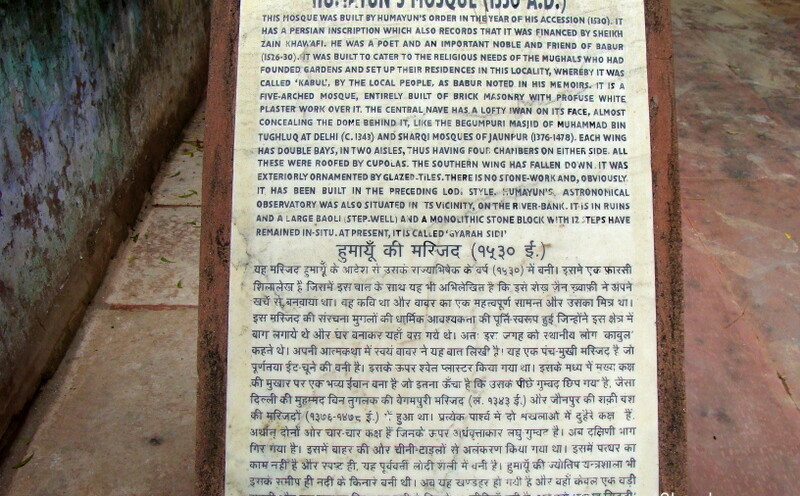 HUMAYUN'S MOSQUE (1530 A.D.)
THIS MOSQUE WAS BUILT BY HUMAYUN'S ORDER IN THE YEAR OF HIS ACCESSION (1530). IT
HAS A PERSIAN INSCRIPTION WHICH ALSO RECORDS THAT IT WAS FINANCED BY SHEIKH
ZAIN KHAWAFI. HE WAS A POET AND AN IMPORTANT NOBLE AND FRIEND OF BABUR
(1526-30). IT WAS BUILT TO CATER TO THE RELIGIOUS NEEDS OF THE MUGHALS WHO HAD
FOUNDED GARDENS AND SET UP THEIR RESIDENCES IN THIS LOCALITY, WHEREBY IT WAS
CALLED 'KABUL', BY THE LOCAL PEOPLE, AS BABUR NOTED IN HIS MEMOIRS. IT IS A
FIVE-ARCHED MOSQUE, ENTIRELY BUILT OF BRICK MASONRY WITH PROFUSE WHITE
PLASTER WORK OVER IT. THE CENTRAL NAVE HAS A LOFTY IWAN ON ITS FACE, ALMOST
CONCEALING THE DOME BEHIND IT, LIKE THE BEGUMPURI MASJID OF MUHAMMAD BIN
TUGHLUQ AT DELHI (C. 1343) AND SHARQI MOSQUES OF JAUNPUR (1376-1478). EACH WING
HAS DOUBLE BAYS, IN TWO AISLES, THUS HAVING FOUR CHAMBERS ON EITHER SIDE. ALL
THESE WERE ROOFED BY CUPOLAS. THE SOUTHERN WING HAS FALLEN DOWN. IT WAS
EXTERIORLY ORNAMENTED BY GLAZED-TILES. THERE IS NO STONE-WORK AND, OBVIOUSLY,
IT HAS BEEN BUILT IN THE PRECEDING LODI STYLE. HUMAYUN'S, ASTRONOMICAL
OBSERVATORY WAS ALSO SITUATED IN ITS VICINITY, ON THE RIVER-BANK. IT IS IN RUINS
AND A LARGE BAOLI (STEP-WELL) AND A MONOLITHIC STONE BLOCK WITH 12 STEPS HAVE
REMAINED IN-SITU. AT PRESENT, IT IS CALLED 'GYARAH SIDI'
हुमायूँ की मस्जिद (१५३० ई.)
यह मस्जिद हुमायूँ के आदेश से उसके राज्याभिषेक के वर्ष (१५३०) में बनी। इसमें एक फारसी
शिलालेख है जिसमें इस बात के साथ यह भी अभिलेखित है कि इसे शेख जैन ख्वाफी ने अपने
खर्चे से बनवाया था। वह कवि था और बाबर का एक महत्वपूर्ण सामन्त और उसका मित्र था।
इस मस्जिद की संरचना मुगलों की धार्मिक आवश्यकता की पूर्ति-स्वरूप हुई जिन्होंने इस क्षेत्र में
बाग लगाये थे और घर बनाकर यहाँ बस गये थे। अतः इस जगह को स्थानीय लोग 'काबुल'
कहते थे। अपनी आत्मकथा में स्वयं बाबर ने यह बात लिखी है। यह एक पंच-मुखी मस्जिद है जो
पूर्णतया ईंट-चूने की बनी है। इसके ऊपर श्वेत प्लास्टर किया गया था। इसके मध्य में मुख्य कक्ष
की मुखार पर एक भव्य ईवान बना है जो इतना ऊँचा है कि उसके पीछे गुम्बद छिप गया है, जैसा
दिल्ली की मुहम्मद बिन तुगलक की बेगमपुरी मस्जिद (ल. १३४३ ई.) और जौनपुर की शर्की वंश
की मस्जिदों (१३७६-१४७८ ई.) में हुआ था। प्रत्येक पार्श्व में दो मेखलाओं में दुहरे कक्ष हैं,
अर्थात् दोनों ओर चार-चार कक्ष हैं जिनके ऊपर अर्धवृत्ताकार लघु गुम्बद हैं। अब दक्षिणी भाग
गिर गया है। इसमें बाहर की ओर चीनी-टाइलों से अलंकरण किया गया था। इसमें पत्थर का
काम नहीं है और स्पष्ट ही, यह पूर्ववर्ती लोदी शैली में बनी है। हुमायूँ की ज्योतिष यन्त्रशाला भी
इसके समीप ही नदी के किनारे बनी थी। अब यह खण्डहर हो गयी है और वहाँ केवल एक बड़ी